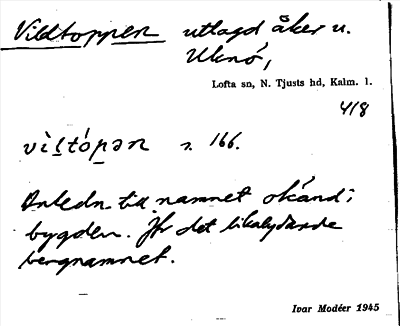 Vildtoppen utlagd åker u.
Uknö,
Lofta sn, N. Tjusts hd, Kalm. l.
418
vìstópən n. 166.
Anledn. till namnet okänd i
bygden. Jfr det likalydande
bergnamnet.
Ivar Modéer 1945